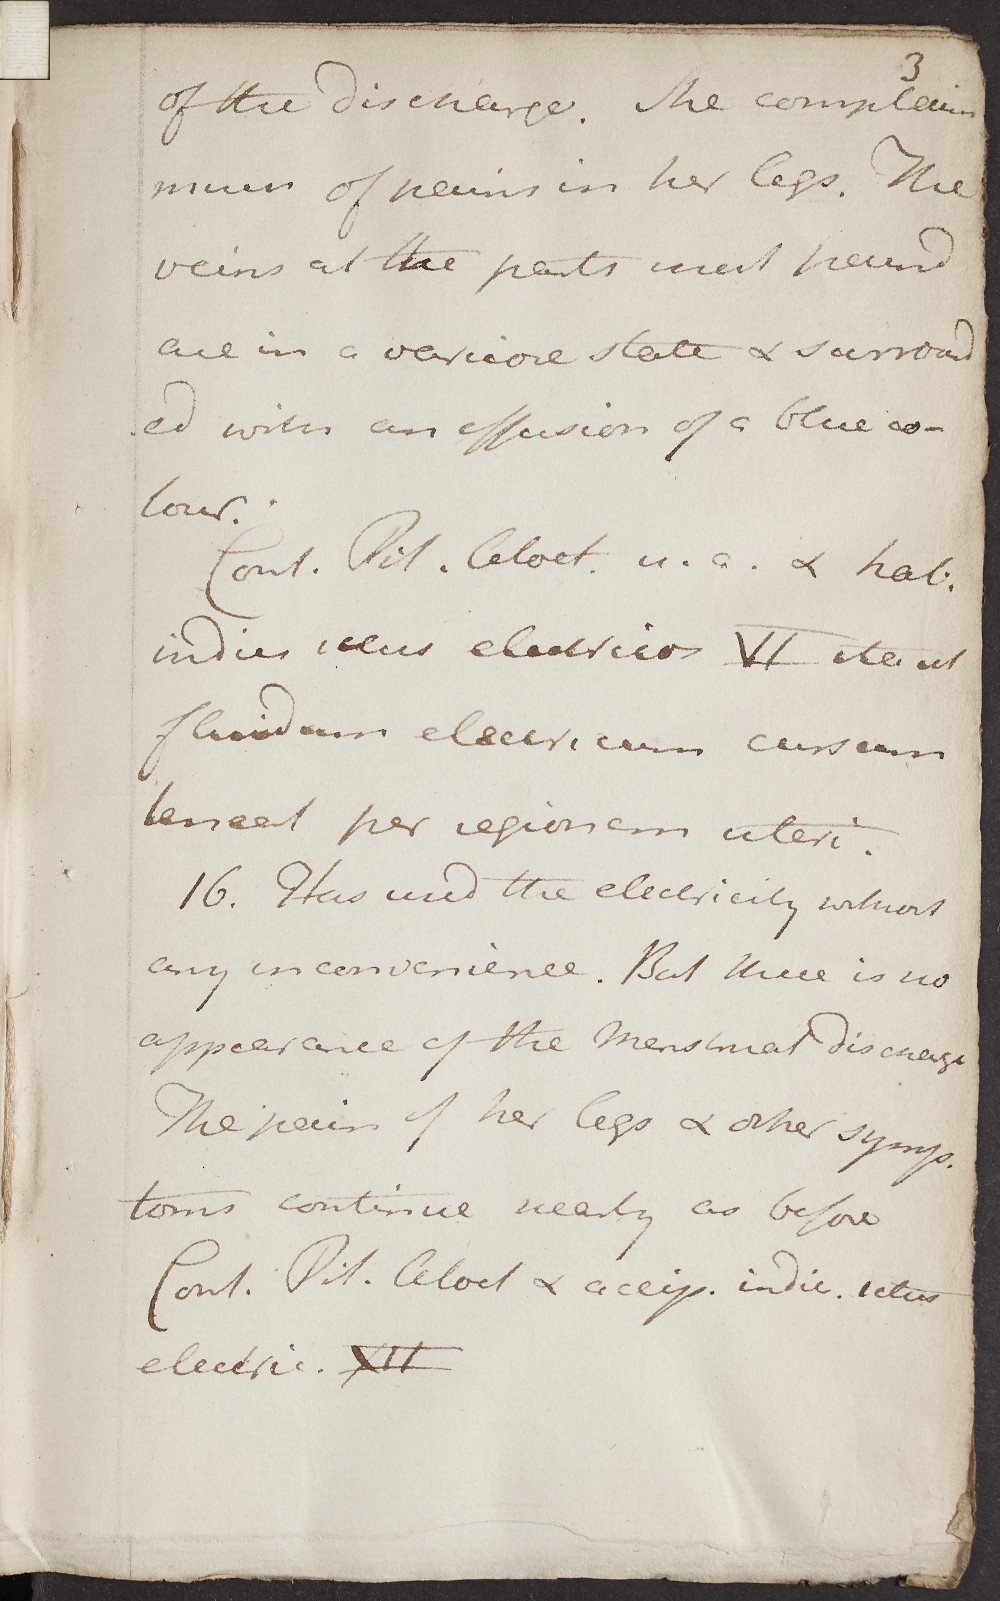 3
of the discharge. She complains
much of pains in her legs. The
veins at the parts most pained
are in a varicose state & surround
ed with an effusion of a blue co-
lour.
Cont. Pil. Aloet. u. a. & hab.
indies ictus electricos VI ita ut
fluidum electricum cursum
teneat per regionem uteri.
16. Has used the electricity without
any inconvenience. But there is no
appearance of the Menstrual discharge
The pain of her legs & other symp.
toms continue nearly as before
Cont. Pil. Aloet & accip. indie. ictus
electric. XII